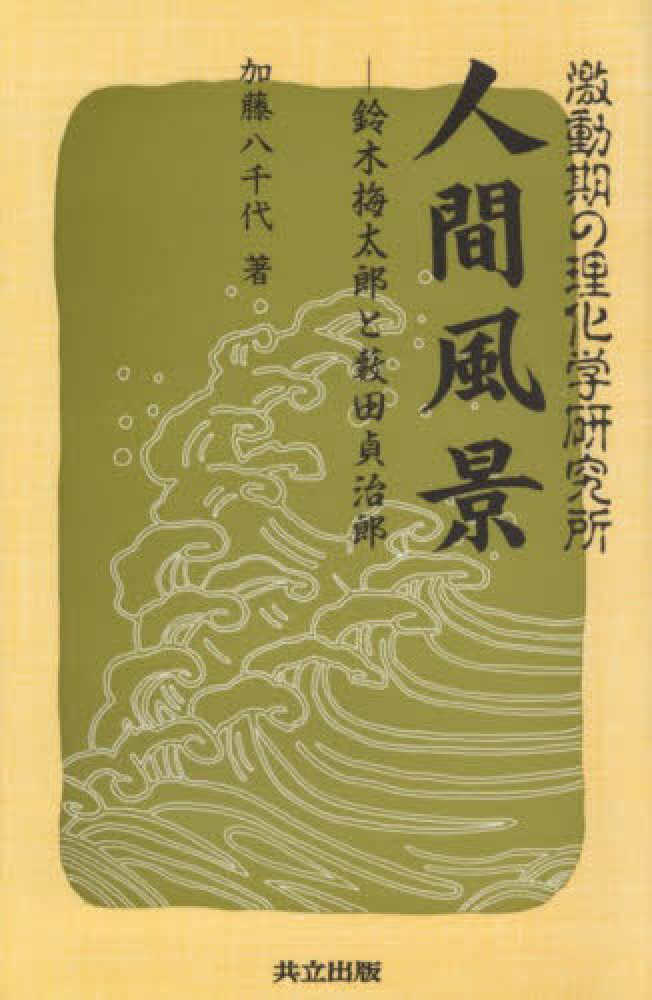 激動期の理化学研究所
人間風景
―鈴木梅太郎と薮田貞治郎
加藤八千代 著
共立出版